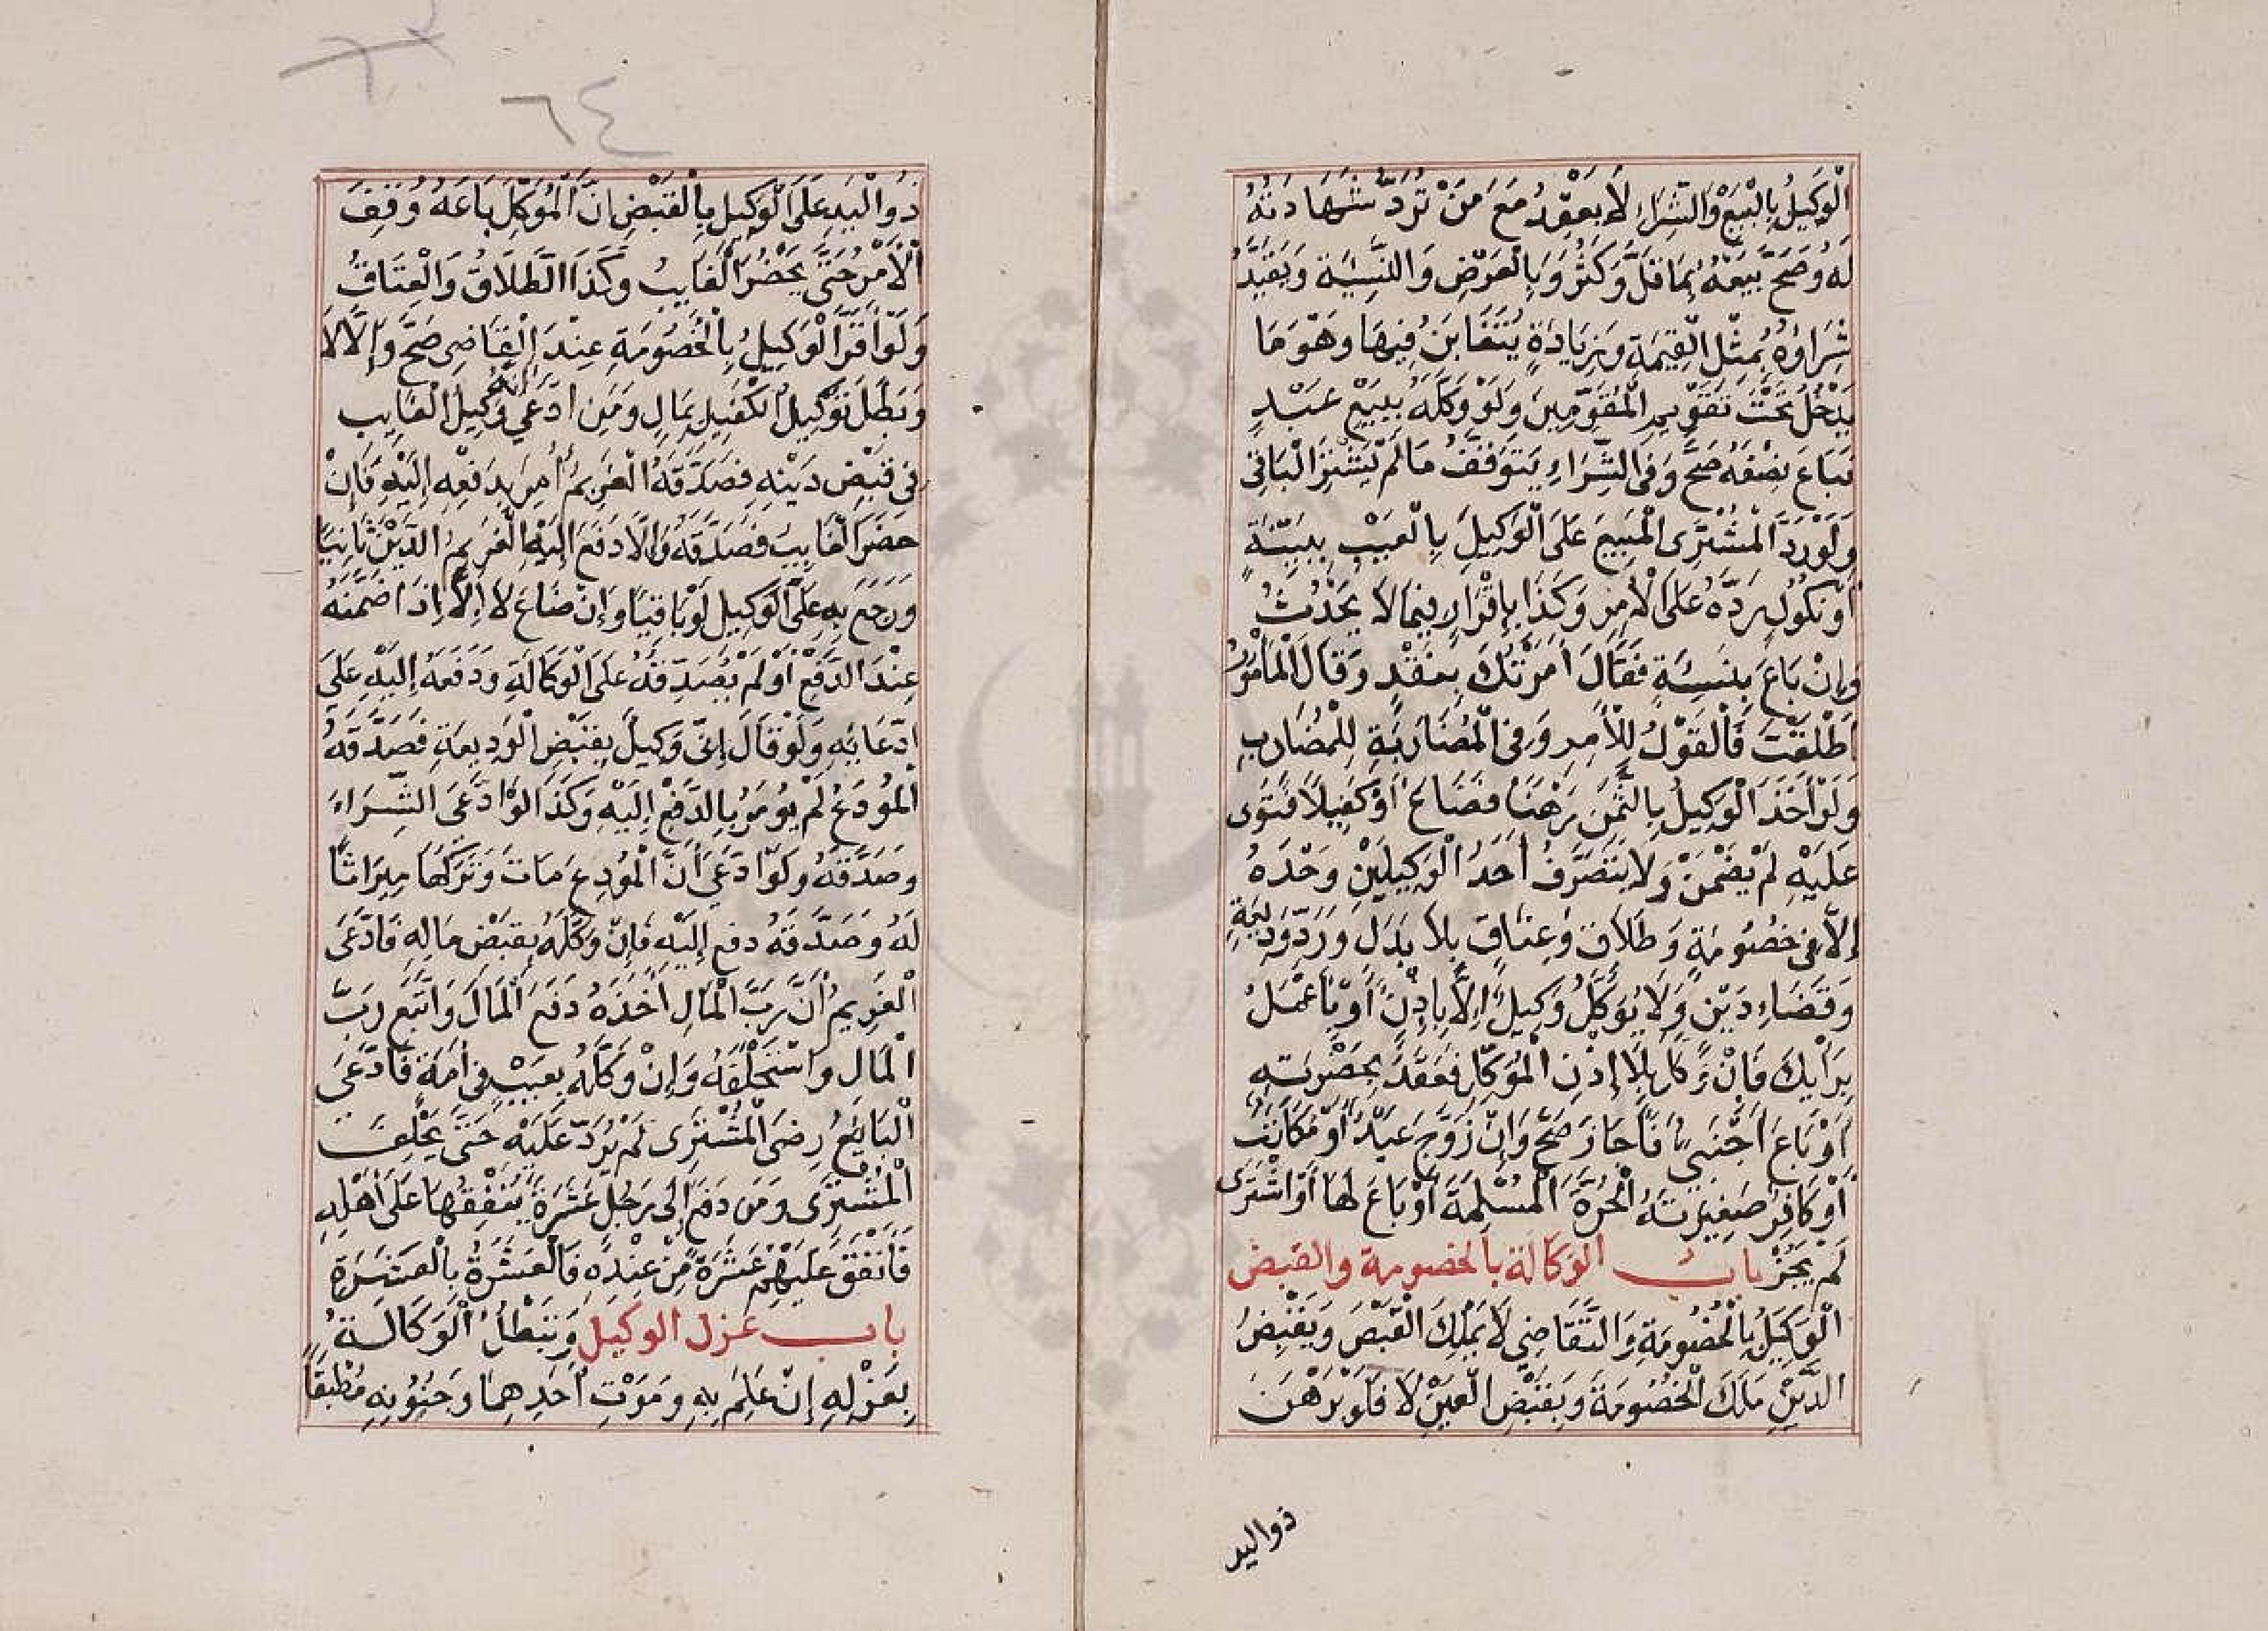 الْوَكِيلُ بِالْبَيْعِ وَالشِّرَاءِ لَا يَعْقِدُ مَعَ مَنْ تُرَدُّ شَهَادَتُهُ
لَهُ وَصَحَّ بَيْعُهُ بِمَا قَلَّ وَكَثُرَ وَبِالْعَرْضِ وَالنَّسِيئَةِ وَتَقَيَّدَ
شِرَاؤُهُ بِمِثْلِ الْقِيمَةِ وَزِيَادَةٍ يُتَغَابَنُ فِيهَا وَهُوَ مَا
يَدْخُلُ تَحْتَ تَقْوِيمِ الْمُقَوِّمِينَ وَلَوْ وَكَّلَهُ بِبَيْعِ عَبْدٍ
فَبَاعَ نِصْفَهُ صَحَّ وَفِي الشِّرَاءِ يَتَوَقَّفُ مَا لَمْ يَشْتَرِ الْبَاقِيَ
وَلَوْ رَدَّ الْمُشْتَرِي الْمَبِيعَ عَلَى الْوَكِيلِ بِالْعَيْبِ بِبَيِّنَةٍ
أَوْ نُكُولٍ رَدَّهُ عَلَى الْآمِرِ وَكَذَا بِإِقْرَارٍ فِيمَا لَا يَحْدُثُ
وَإِنْ بَاعَ بِنَسِيئَةٍ فَقَالَ أَمَرْتُكَ بِنَقْدٍ وَقَالَ الْمَأْمُورُ
أَطْلَقْتَ فَالْقَوْلُ لِلْآمِرِ وَفِي الْمُضَارَبَةِ لِلْمُضَارِبِ
وَلَوْ أَخَذَ الْوَكِيلُ بِالثَّمَنِ رَهْنًا فَضَاعَ أَوْ كَفِيلًا فَتَوَى
عَلَيْهِ لَمْ يَضْمَنْ وَلَا يَتَصَرَّفُ أَحَدُ الْوَكِيلَيْنِ وَحْدَهُ
إِلَّا فِي خُصُومَةٍ وَطَلَاقٍ وَعِتَاقٍ بِلَا بَدَلٍ وَرَدِّ وَدِيعَةٍ
وَقَضَاءِ دَيْنٍ وَلَا يُوَكِّلُ وَكِيلٌ إِلَّا بِإِذْنٍ أَوْ بِاعْمَلْ
بِرَأْيِكَ فَإِنْ وَكَّلَ بِلَا إِذْنِ الْمُوَكِّلِ فَعَقَدَ بِحَضْرَتِهِ
أَوْ بَاعَ أَجْنَبِيٌّ فَأَجَازَ صَحَّ وَإِنْ زَوَّجَ عَبْدٌ أَوْ مُكَاتَبٌ
أَوْ كَافِرٌ صَغِيرَتَهُ الْحُرَّةَ الْمُسْلِمَةَ أَوْ بَاعَ لَهَا أَوِ اشْتَرَى
لَمْ يَجُزْ بابُ الوكالة بالخصومة والقبض
الْوَكِيلُ بِالْخُصُومَةِ وَالتَّقَاضِي لَا يَمْلِكُ الْقَبْضَ وَبِقَبْضِ
الدَّيْنِ مَلَكَ الْخُصُومَةَ وَبِقَبْضِ الْعَيْنِ لَا فَلَوْ بَرْهَنَ
ذو اليد
٦٤
ذُو الْيَدِ عَلَى الْوَكِيلِ بِالْقَبْضِ أَنَّ الْمُوَكِّلَ بَاعَهُ وُقِفَ
الْأَمْرُ حَتَّى يَحْضُرَ الْغَايِبُ وَكَذَا الطَّلَاقُ وَالْعِتَاقُ
وَلَوْ أَقَرَّ الْوَكِيلُ بِالْخُصُومَةِ عِنْدَ الْقَاضِي صَحَّ وَإِلَّا لَا
وَبَطَلَ تَوْكِيلُ الْكَفِيلِ بِمَالٍ وَمَنِ ادَّعَى أَنَّهُ وَكِيلُ الْغَايِبِ
فِي قَبْضِ دَيْنِهِ فَصَدَّقَهُ الْغَرِيمُ أُمِرَ بِدَفْعِهِ إِلَيْهِ فَإِنْ
حَضَرَ الْغَايِبُ فَصَدَّقَهُ وَإِلَّا دَفَعَ إِلَيْهِ الْغَرِيمُ الدَّيْنَ ثَانِيًا
وَرَجَعَ بِهِ عَلَى الْوَكِيلِ لَوْ بَاقِيًا وَإِنْ ضَاعَ لَا إِلَّا إِذَا ضَمَّنَهُ
عِنْدَ الدَّفْعِ أَوْ لَمْ يُصَدِّقْهُ عَلَى الْوَكَالَةِ وَدَفَعَهُ إِلَيْهِ عَلَى
ادِّعَائِهِ وَلَوْ قَالَ إِنِّي وَكِيلٌ بِقَبْضِ الْوَدِيعَةِ فَصَدَّقَهُ
الْمُودَعُ لَمْ يُؤْمَرْ بِالدَّفْعِ إِلَيْهِ وَكَذَا لَوِ ادَّعَى الشِّرَاءَ
وَصَدَّقَهُ وَلَوِ ادَّعَى أَنَّ الْمُودِعَ مَاتَ وَتَرَكَهَا مِيرَاثًا
لَهُ وَصَدَّقَهُ دفع إِلَيْهِ فَإِنْ وَكَّلَهُ بِقَبْضِ مَالِهِ فَادَّعَى
الْغَرِيمُ أَنَّ رَبَّ الْمَالِ أَخَذَهُ دَفَعَ الْمَالَ وَاتَّبَعَ رَبَّ
الْمَالِ وَاسْتَحْلَفَهُ وَإِنْ وَكَّلَهُ بِعَيْبٍ فِي أَمَةٍ فَادَّعَى
الْبَائِعُ رِضَى الْمُشْتَرِي لَمْ يُرَدَّ عَلَيْهِ حَتَّى يَحْلِفَ
الْمُشْتَرِي وَمَنْ دَفَعَ إِلَى رَجُلٍ عَشَرَةً يُنْفِقُهَا عَلَى أَهْلِهِ
فَأَنْفَقَ عَلَيْهِمْ عَشَرَةً مِنْ عِنْدِهِ فَالْعَشَرَةُ بِالْعَشَرَةِ
باب عزل الوكيل وَتَبْطُلُ الْوَكَالَةُ
بِعَزْلِهِ إِنْ عَلِمَ بِهِ وَمَوْتِ أَحَدِهِمَا وَجُنُونِهِ مُطْبِقًا